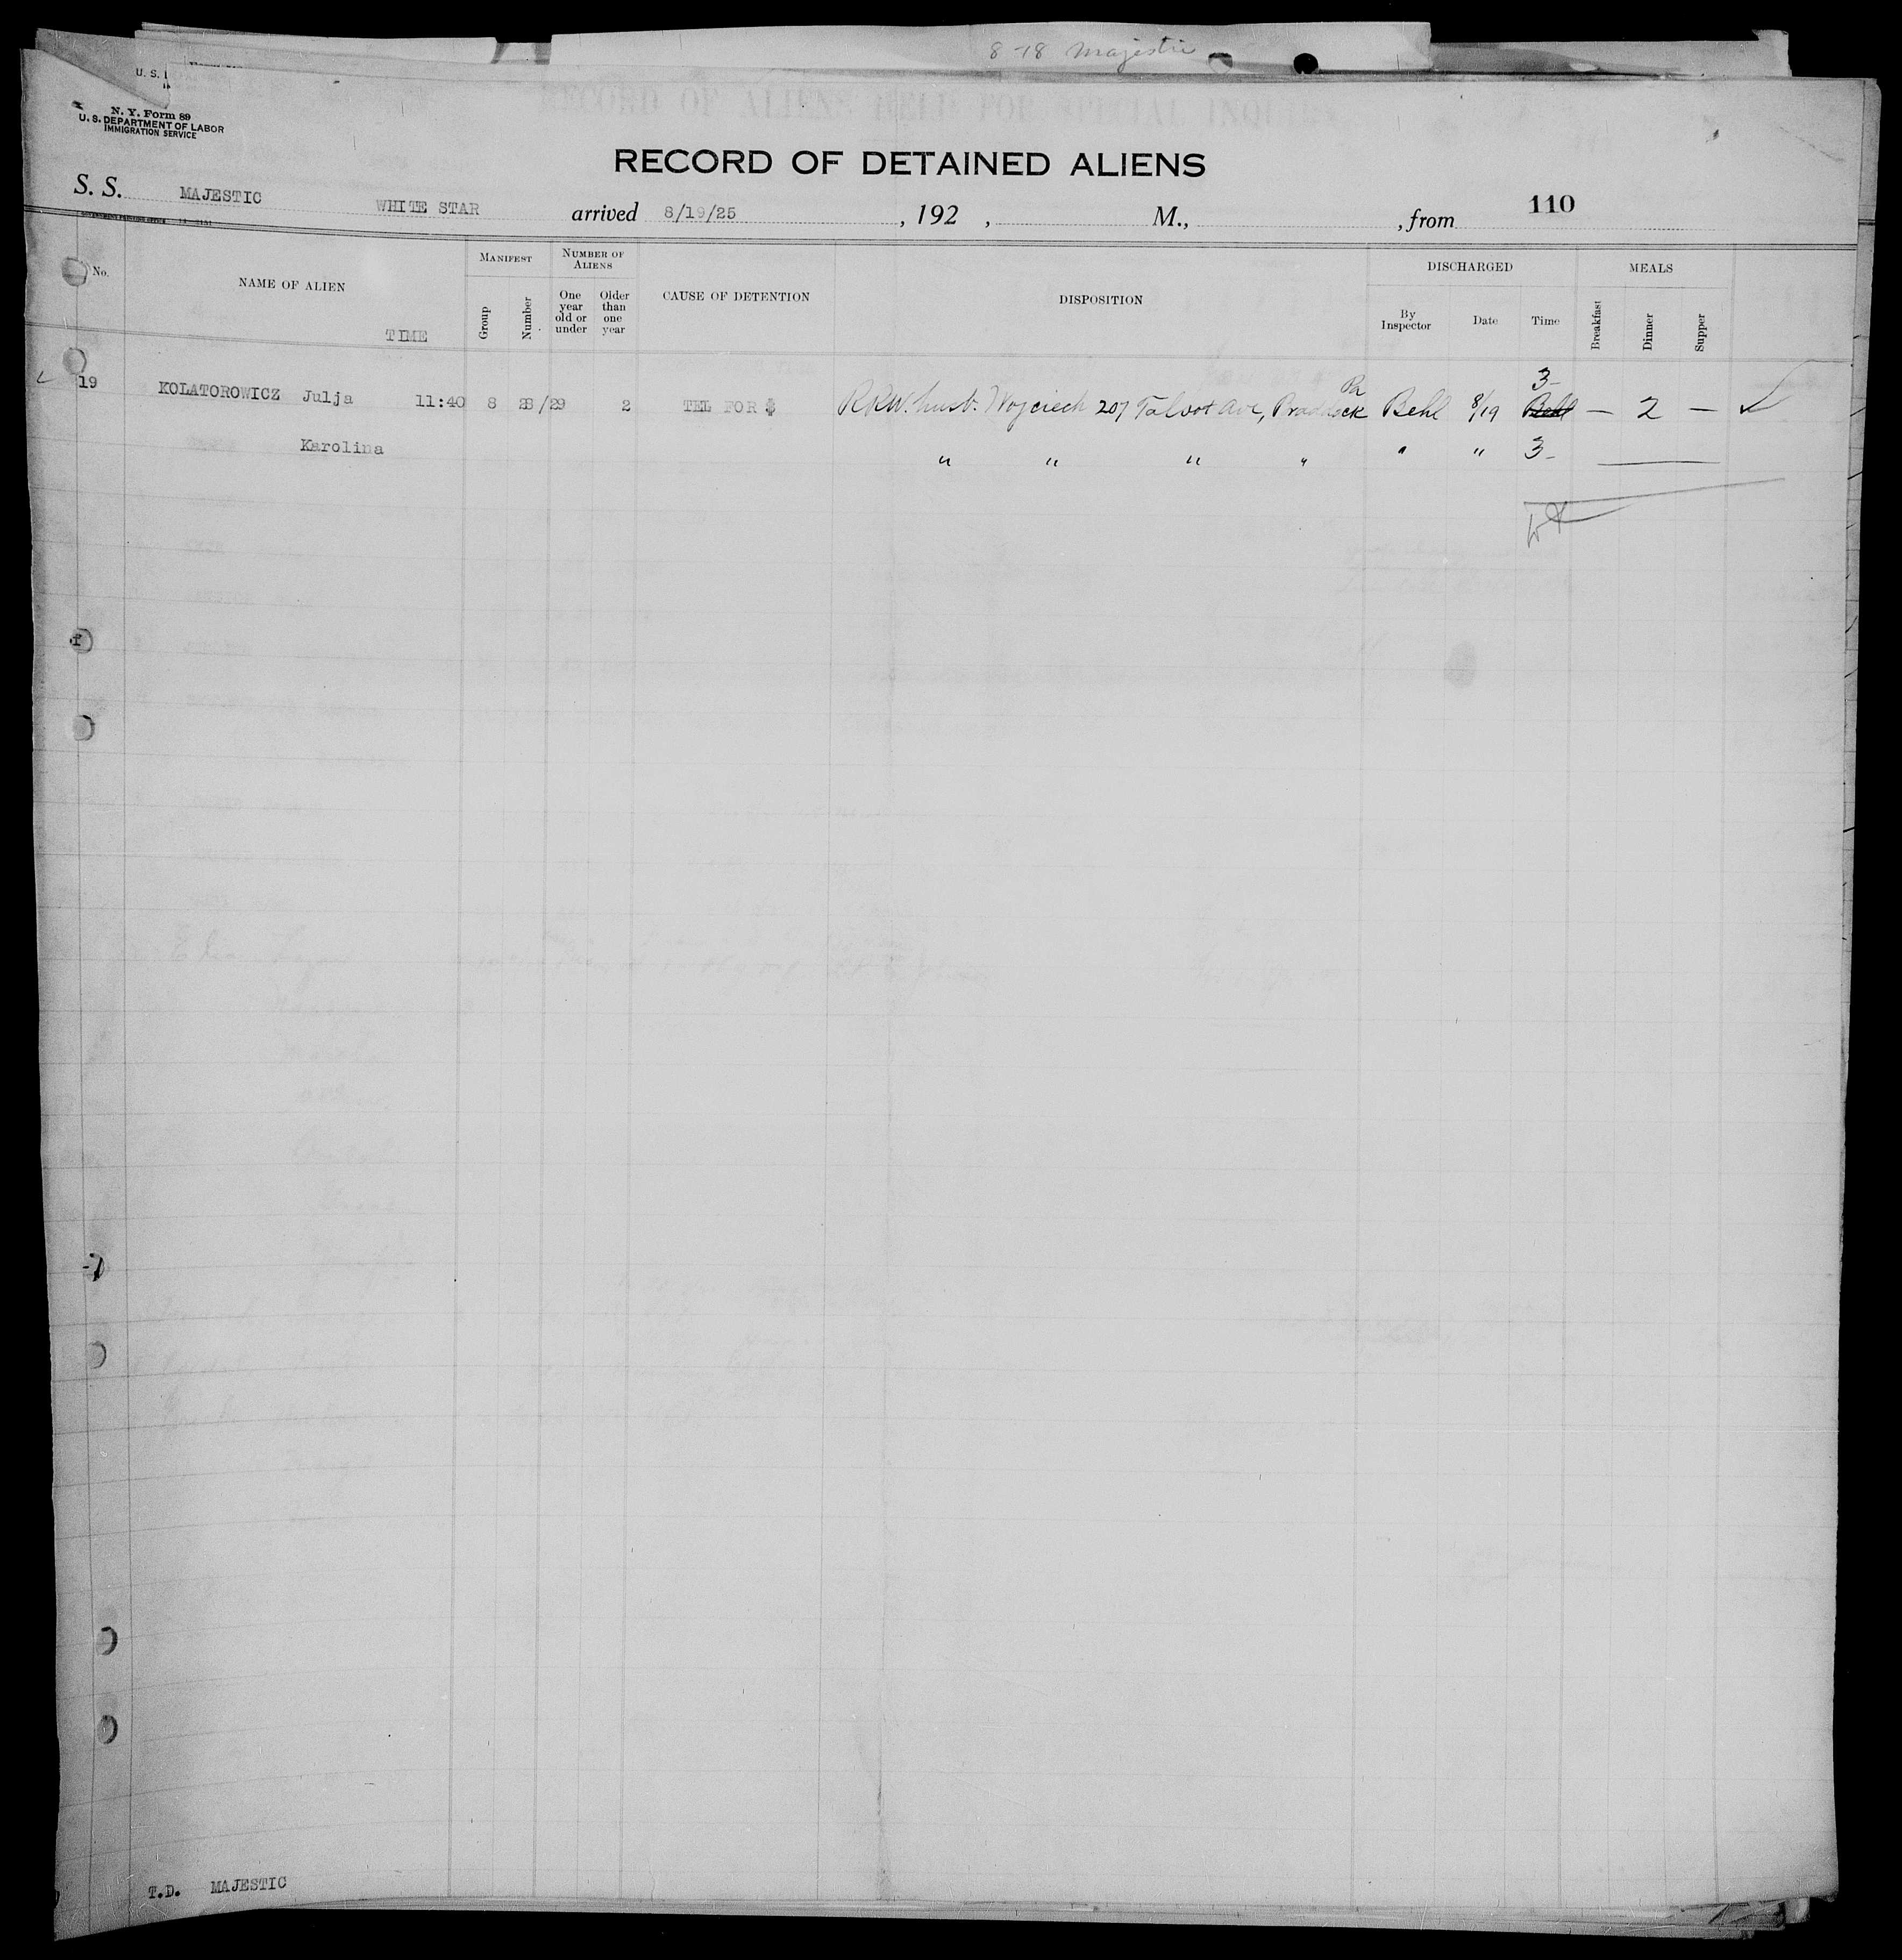 8-18 Majestic
U. S.
N. Y. Form 89
U. S. DEPARTMENT OF LABOR
IMMIGRATION SERVICE
RECORD OF DETAINED ALIENS
S. S. MAJESTIC WHITE STAR arrived 8/19/25, 192 , M., , from 110
No. NAME OF ALIEN TIME MANIFEST Group Number NUMBER OF ALIENS One year old or under Older than one year CAUSE OF DETENTION DISPOSITION DISCHARGED By Inspector Date Time MEALS Breakfast Dinner Supper
19 KOLATOROWICZ Julja 11:40 8 28/29 2 TEL FOR $ RRW. husb. Wojciech 207 Talbot Ave, Braddock Pa Behl 8/19 Behl 3- — 2 — ✓
Karolina " " " " " " 3-
T.D. MAJESTIC